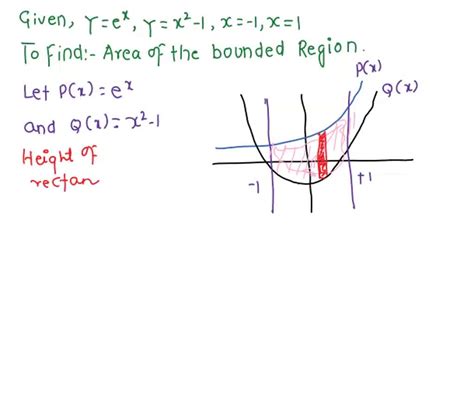 Given, y=e^x, y=x²-1, x=-1, x=1
To Find:- Area of the bounded Region.
Let P(x)=e^x
and Q(x)=x²-1
Height of
rectan
P(x)
Q(x)
-1
+1